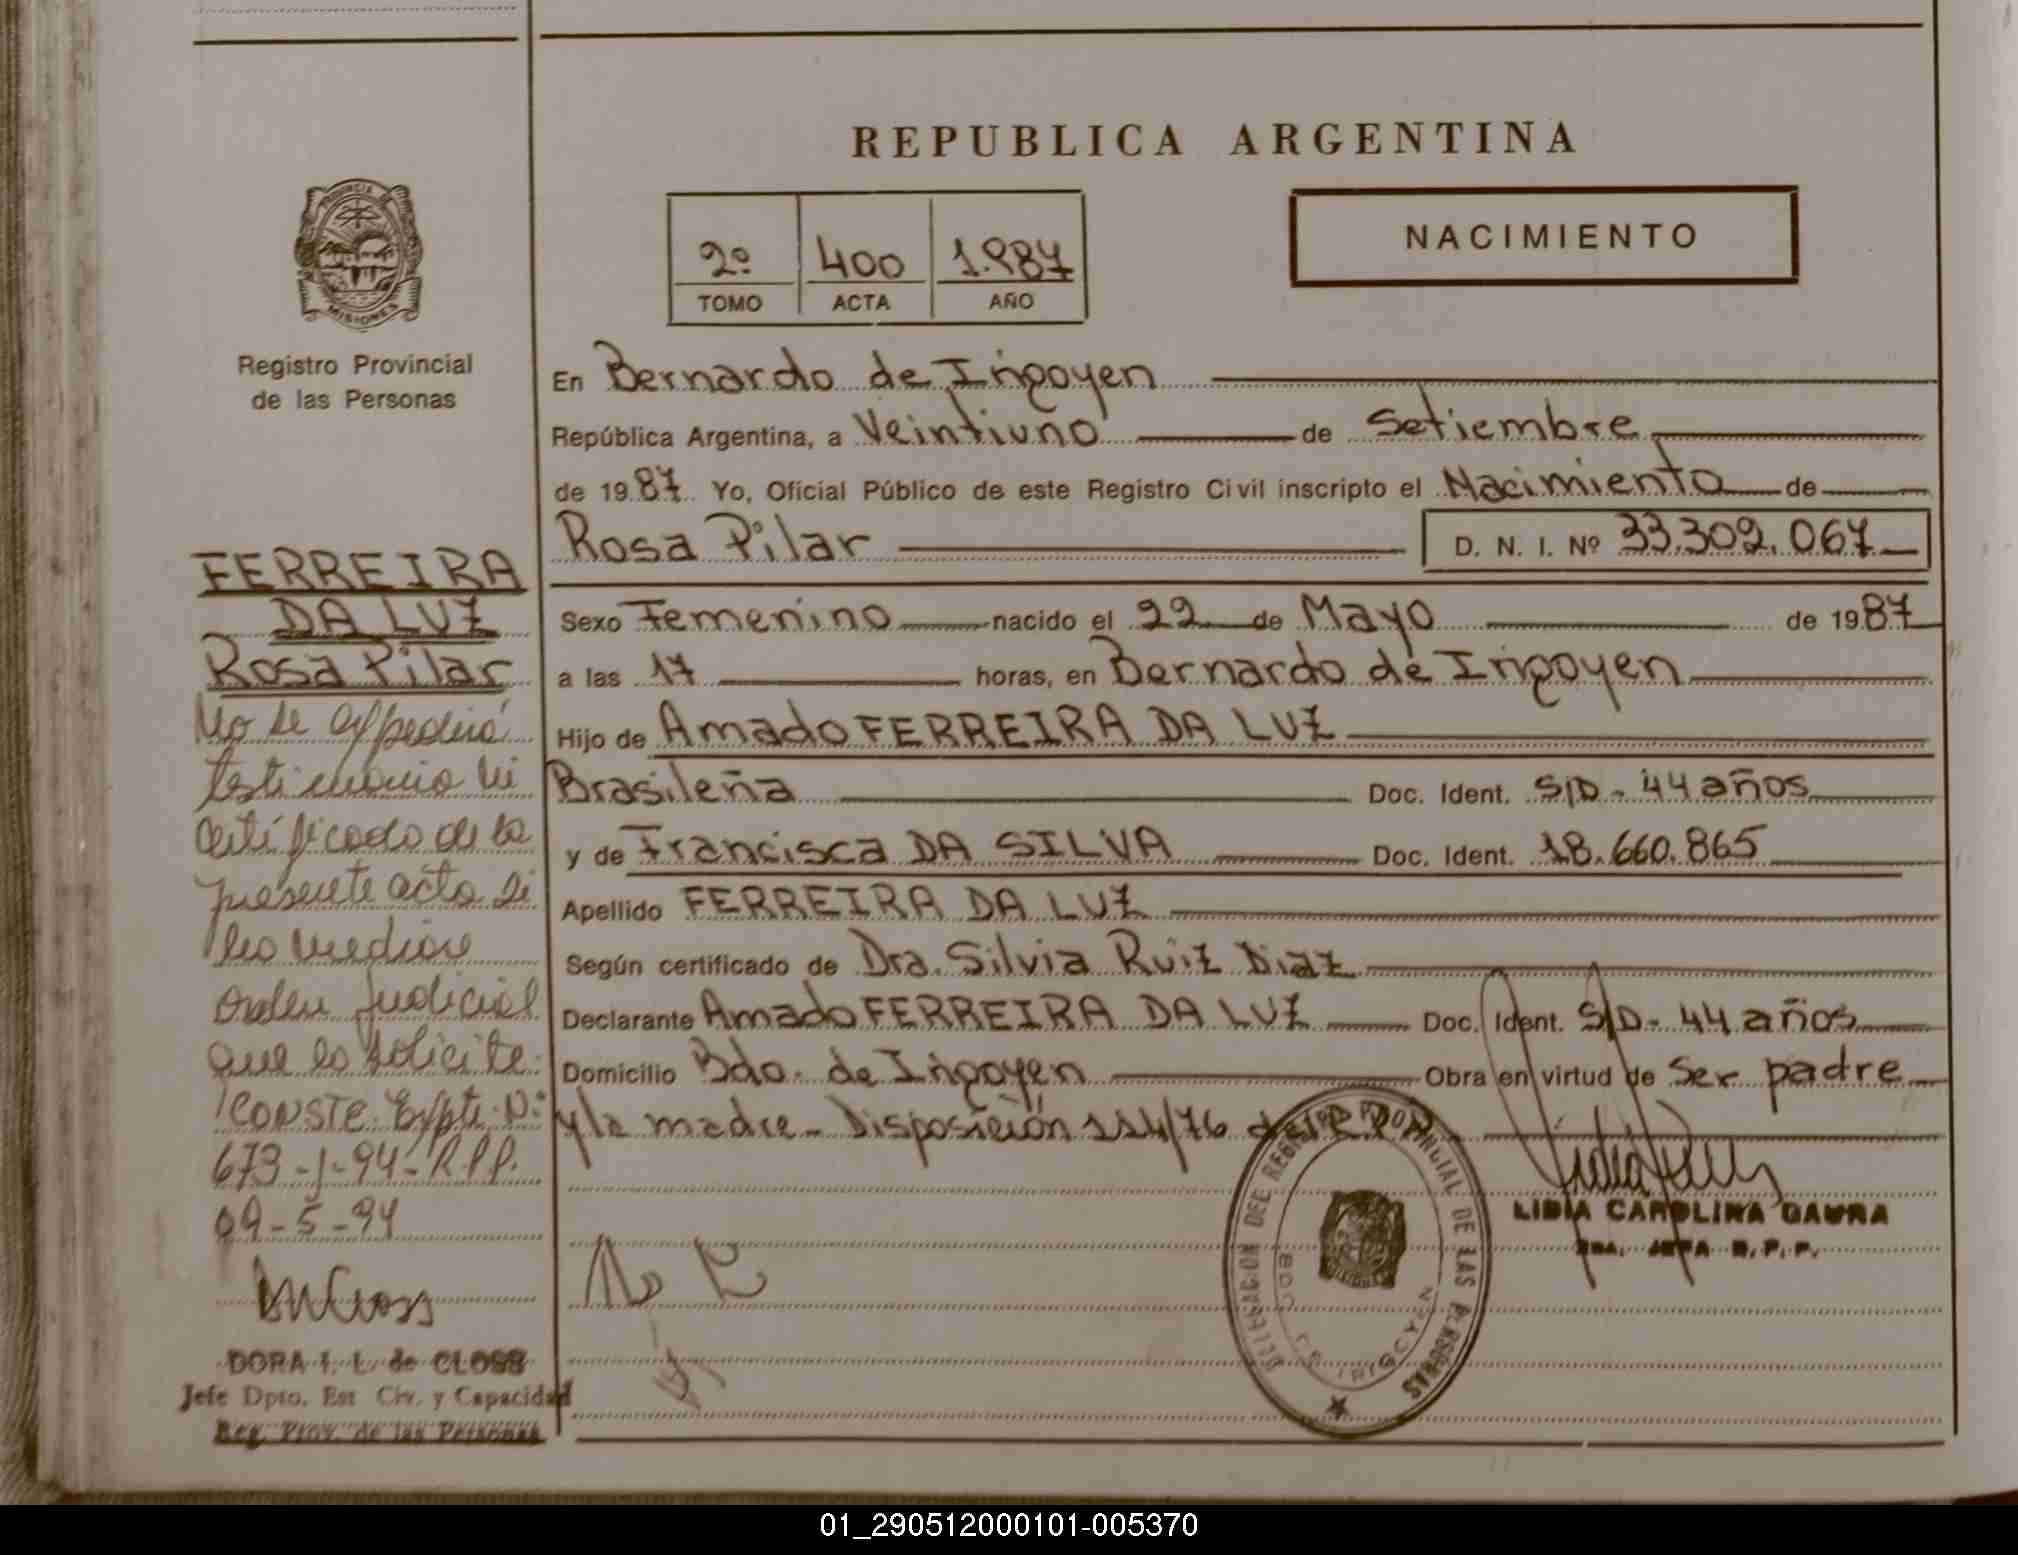 REPUBLICA ARGENTINA
PROVINCIA DE
MISIONES
Registro Provincial
de las Personas
2º 400 1.987
TOMO ACTA AÑO
NACIMIENTO
En Bernardo de Irigoyen
República Argentina, a Veintiuno de Setiembre
de 1987 Yo, Oficial Público de este Registro Civil inscripto el Nacimiento de
Rosa Pilar D. N. I. Nº 33.309.067
Sexo Femenino nacido el 22 de Mayo de 1987
a las 17 horas, en Bernardo de Irigoyen
Hijo de Amado FERREIRA DA LUZ
Brasileña Doc. Ident. S/D - 44 años
y de Francisca DA SILVA Doc. Ident. 18.660.865
Apellido FERREIRA DA LUZ
Según certificado de Dra. Silvia Ruiz Diaz
Declarante Amado FERREIRA DA LUZ Doc. Ident. S/D - 44 años
Domicilio Bdo. de Irigoyen Obra en virtud de Ser padre
y la madre - Disposición 114/76 del R.P.P.
FERREIRA
DA LUZ
Rosa Pilar
No se expedirá
testimonio ni
certificado de la
presente acta si
no mediare
orden Judicial
que lo solicite.
CONSTE. Expte. Nº
673-J-94-R.P.P.
09-5-94
DORA I. L. de CLOSS
Jefe Dpto. Est Civ. y Capacidad
Reg. Prov. de las Personas
DELEGACION DEL REGISTRO PROVINCIAL DE LAS PERSONAS
BDO. DE IRIGOYEN
LIDIA CAROLINA DAURA
JEFA R. P. P.
01_290512000101-005370